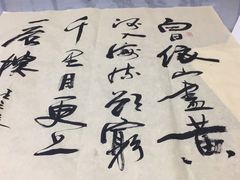 白日依山盡黃
河入海流欲窮
千里目更上
一層樓